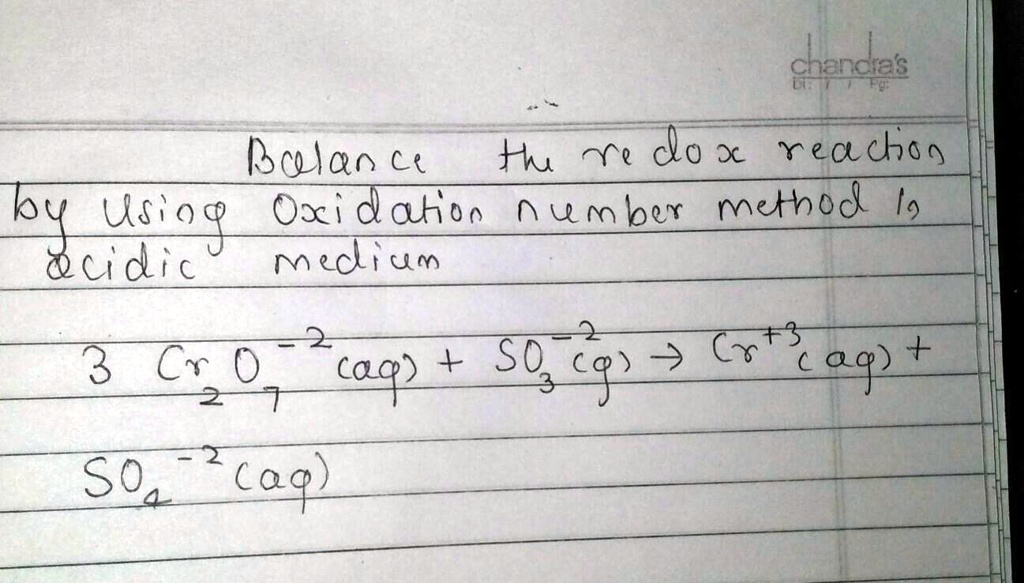 chandra's
Dt: / / Pg:
Balance the redox reaction
by using Oxidation number method in
acidic medium
3 Cr₂O₇⁻² (aq) + SO₃⁻² (g) → Cr⁺³ (aq) +
SO₄⁻² (aq)